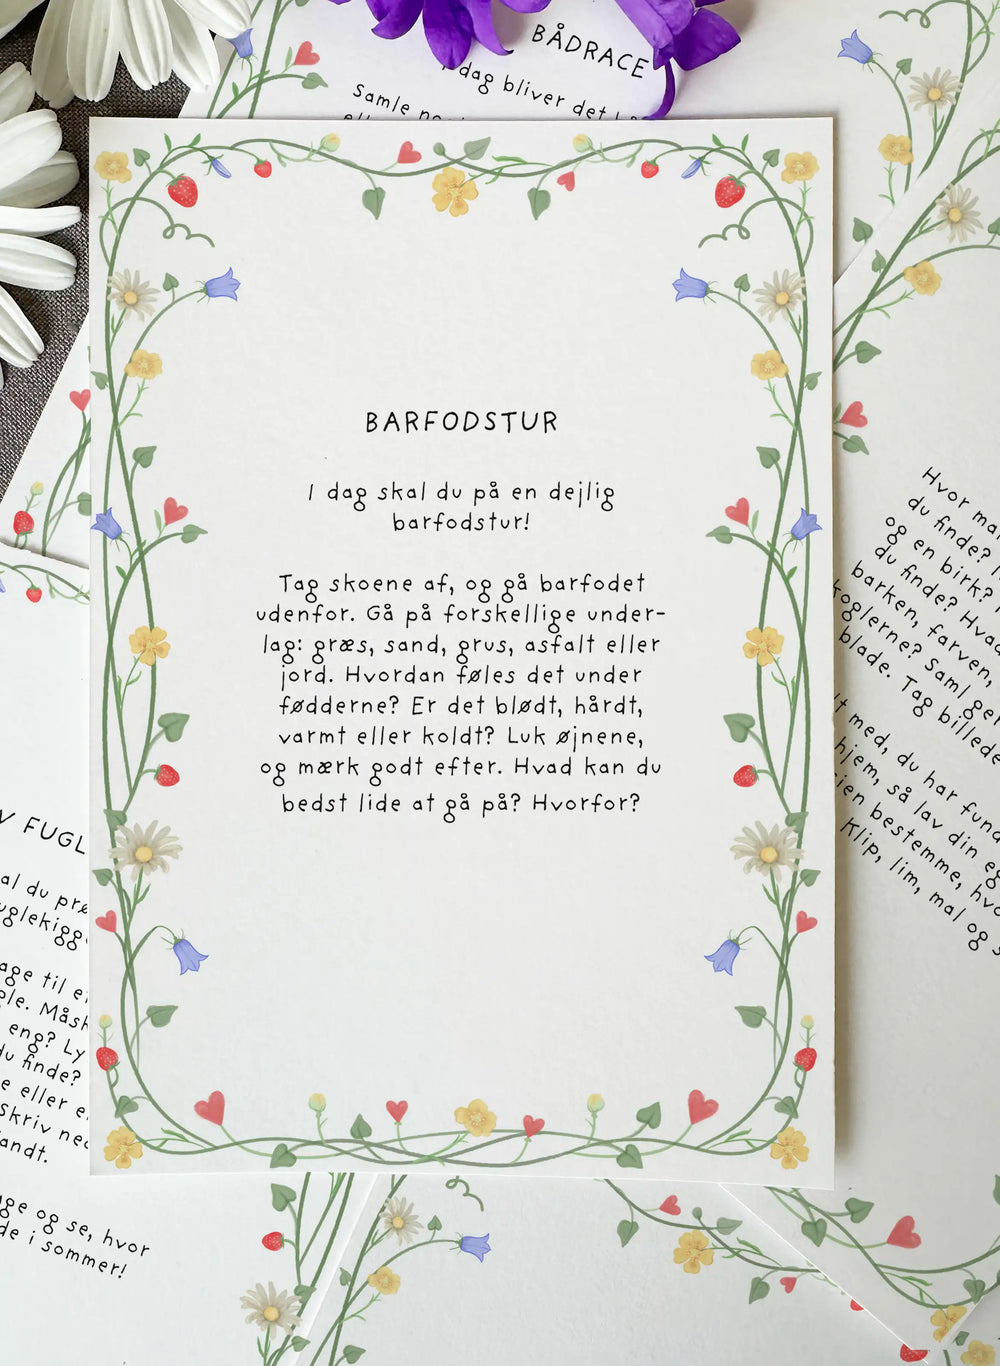 BÅDRACE
dag bliver det
Samle
BARFODSTUR
I dag skal du på en dejlig
barfodstur!
Tag skoene af, og gå barfodet
udenfor. Gå på forskellige under-
lag: græs, sand, grus, asfalt eller
jord. Hvordan føles det under
fødderne? Er det blødt, hårdt,
varmt eller koldt? Luk øjnene,
og mærk godt efter. Hvad kan du
bedst lide at gå på? Hvorfor?
Hvor
du finde?
og en birk?
du finde? Hvad
barken, farven,
koglerne? Saml
blade. Tag billede
med, du har
hjem, så lav din
bestemme,
Klip, lim, mal og
FUGL
du
til
Måsk
eng? Ly
du finde?
eller
skriv
og se, hvor
i sommer!